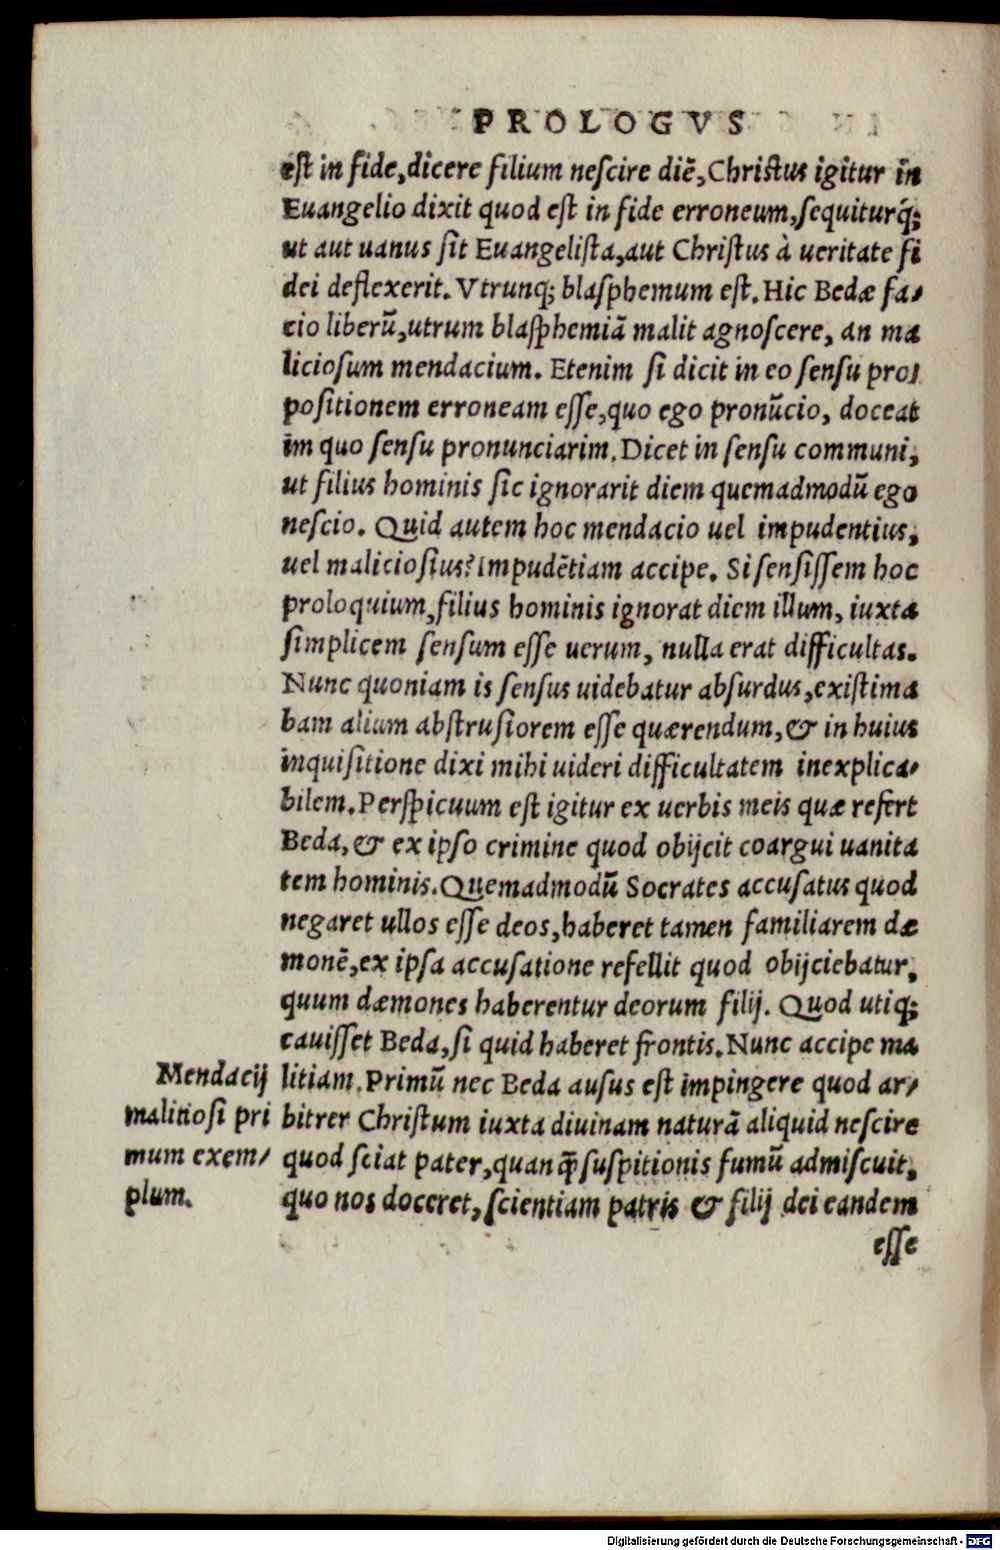 PROLOGVS
est in fide, dicere filium nescire diē, Christus igitur in
Euangelio dixit quod est in fide erroneum, sequiturq́;
ut aut uanus sit Euangelista, aut Christus à ueritate fi
dei deflexerit. Vtrunq; blasphemum est. Hic Bedæ fa-
cio liberū, utrum blasphemiā malit agnoscere, an ma
liciosum mendacium. Etenim si dicit in eo sensu pro-
positionem erroneam esse, quo ego pronūcio, doceat
im quo sensu pronunciarim. Dicet in sensu communi,
ut filius hominis sic ignorarit diem quemadmodū ego
nescio. Quid autem hoc mendacio uel impudentius,
uel maliciosius? Impudētiam accipe. Si sensissem hoc
proloquium, filius hominis ignorat diem illum, iuxta
simplicem sensum esse uerum, nulla erat difficultas.
Nunc quoniam is sensus uidebatur absurdus, existima
bam alium abstrusiorem esse quærendum, & in huius
inquisitione dixi mihi uideri difficultatem inexplica-
bilem. Perspicuum est igitur ex uerbis meis quæ refert
Beda, & ex ipso crimine quod obijcit coargui uanita
tem hominis. Quemadmodū Socrates accusatus quod
negaret ullos esse deos, haberet tamen familiarem dæ
monē, ex ipsa accusatione refellit quod obijciebatur,
quum dæmones haberentur deorum filij. Quod utiq;
cauisset Beda, si quid haberet frontis. Nunc accipe ma
litiam. Primū nec Beda ausus est impingere quod ar-
bitrer Christum iuxta diuinam naturā aliquid nescire
quod sciat pater, quanq̃ suspitionis fumū admiscuit,
quo nos doceret, scientiam patris & filij dei eandem
esse
Mendacij
malitiosi pri
mum exem-
plum.
Digitalisierung gefördert durch die Deutsche Forschungsgemeinschaft - DFG